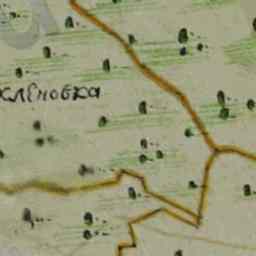 клёновка